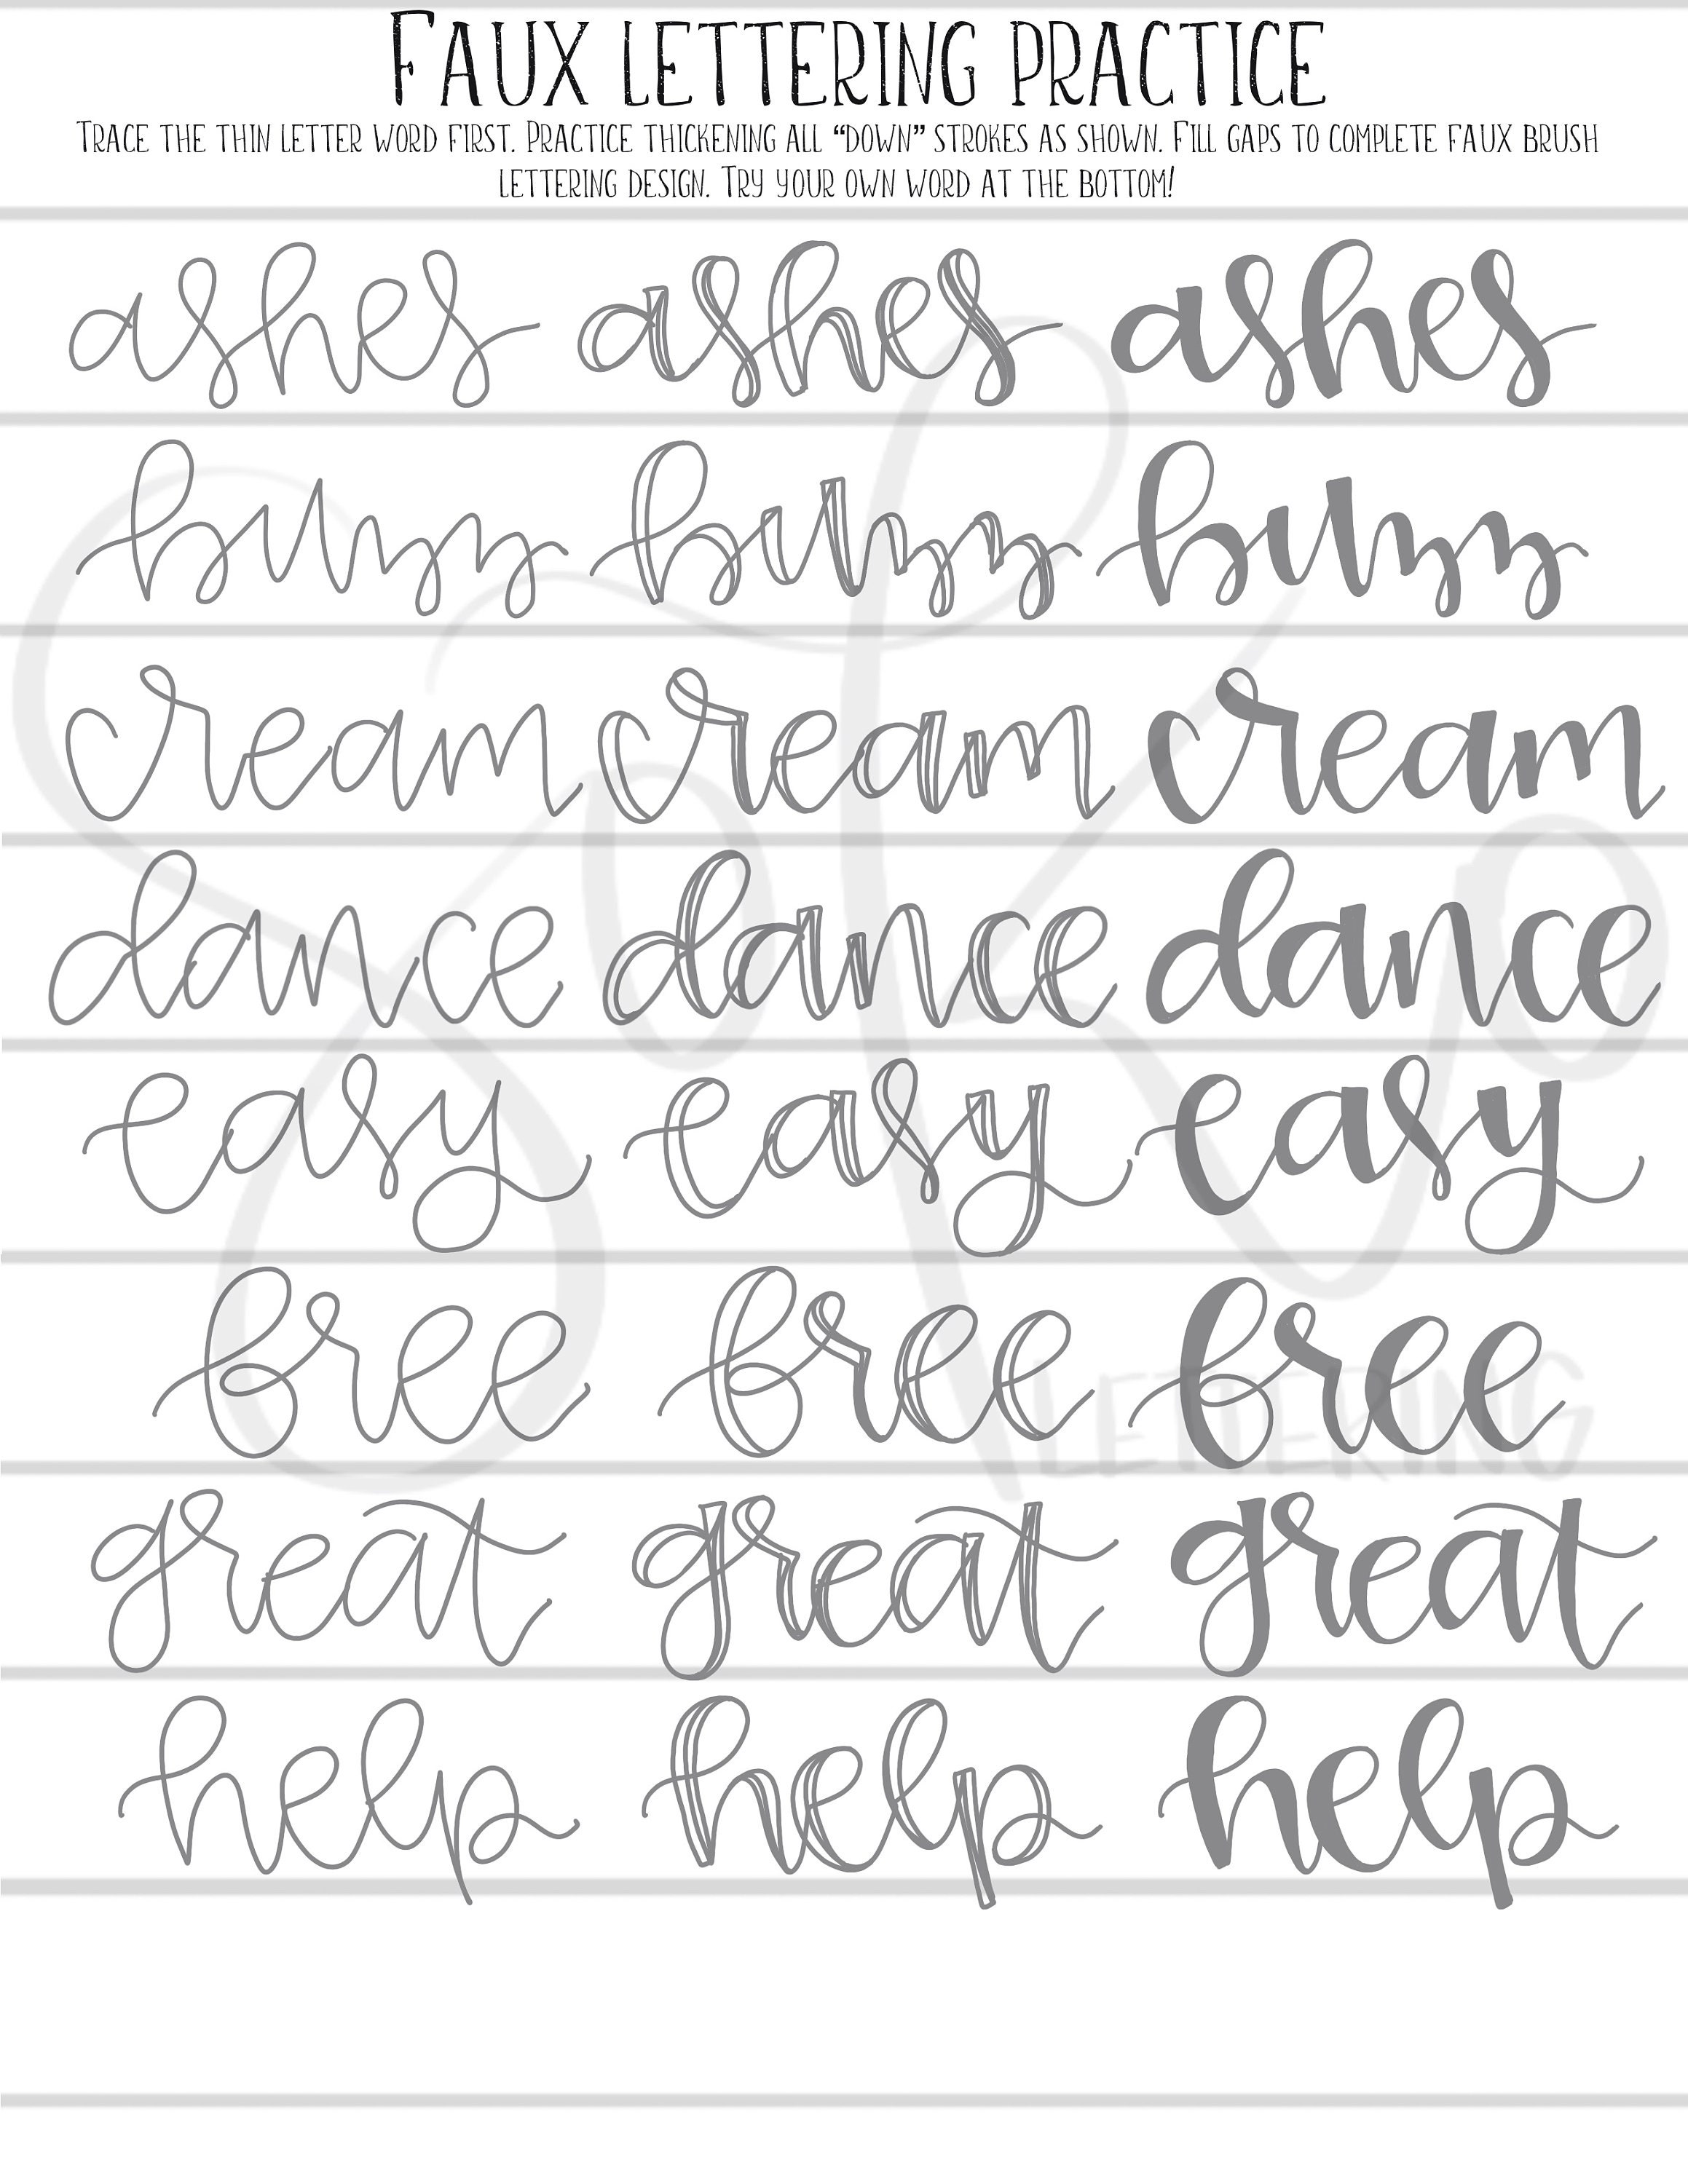 FAUX LETTERING PRACTICE
TRACE THE THIN LETTER WORD FIRST. PRACTICE THICKENING ALL “DOWN” STROKES AS SHOWN. FILL GAPS TO COMPLETE FAUX BRUSH
LETTERING DESIGN. TRY YOUR OWN WORD AT THE BOTTOM!
ashes ashes ashes
buzz buzz buzz
cream cream cream
dance dance dance
easy easy easy
free free free
great great great
help help help
LETTERING